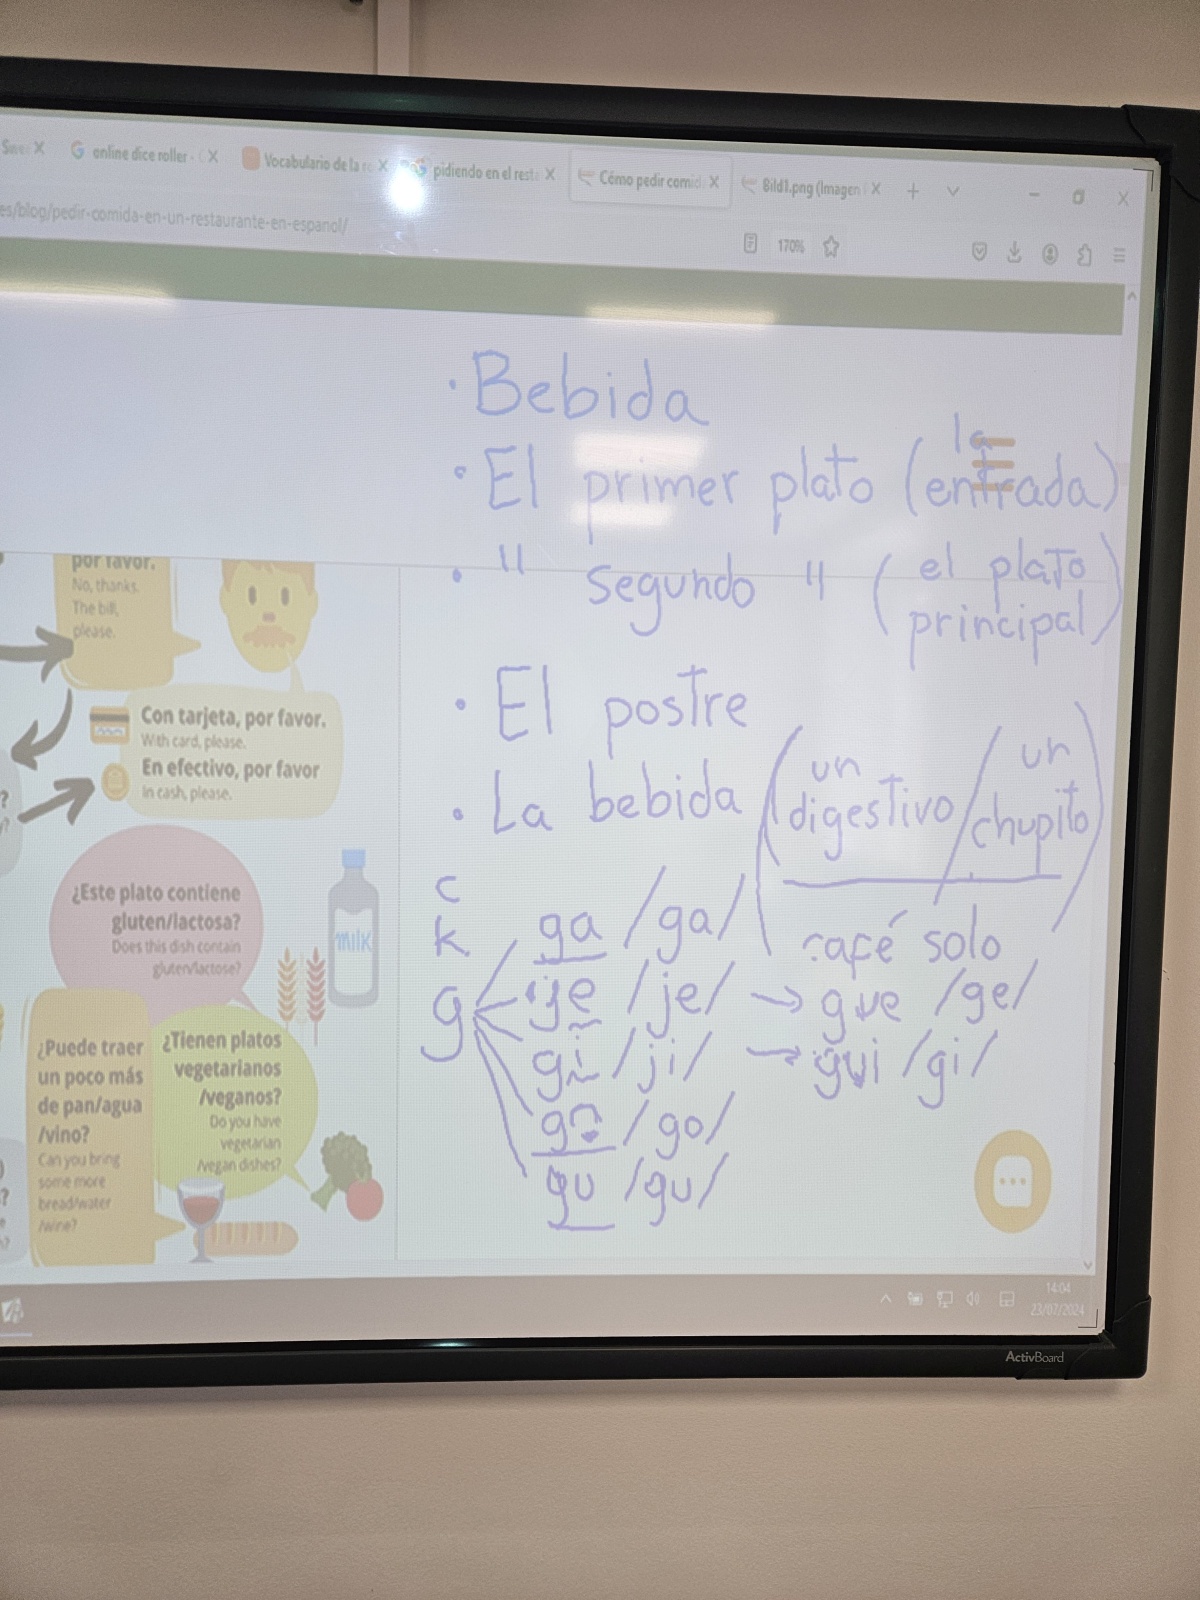 online dice roller -
Vocabulario de la re
pidiendo en el resta
Cómo pedir comid
Bild1.png (Imagen
es/blog/pedir-comida-en-un-restaurante-en-espanol/
170%
· Bebida
· El primer plato (la entrada)
· " segundo " (el plato principal)
· El postre
· La bebida (un digestivo / un chupito)
café solo
c
k
g
ga /ga/
ge /je/ → gue /ge/
gi /ji/ → gui /gi/
go /go/
gu /gu/
por favor.
No, thanks.
The bill,
please.
Con tarjeta, por favor.
With card, please.
En efectivo, por favor
In cash, please.
¿Este plato contiene
gluten/lactosa?
Does this dish contain
gluten/lactose?
milk
¿Puede traer
un poco más
de pan/agua
/vino?
Can you bring
some more
bread/water
/wine?
¿Tienen platos
vegetarianos
/veganos?
Do you have
vegetarian
/vegan dishes?
14:04
23/07/2024
ActivBoard